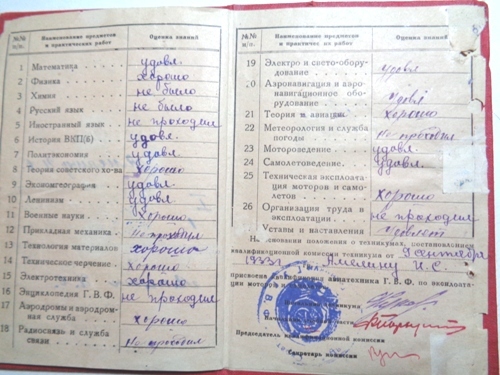 №№ п/п. Наименование предмета и практических работ Оценка знаний
1 Математика удовл.
2 Физика хорошо
3 Химия не было
4 Русский язык не было
5 Иностранный язык не проходил
6 История ВКП(б) удовл.
7 Политэкономия удовл.
8 Теория советского хо-ва хорошо
9 Экономгеография удовл.
10 Ленинизм удовл.
11 Военные науки хорошо
12 Прикладная механика Не проходил
13 Технология материалов хорошо
14 Техническое черчение хорошо
15 Электротехника хорошо
16 Энциклопедия Г.В.Ф. не проходил
17 Аэродромы и аэродромная служба
хорошо
18 Радиосвязь и служба
связи Не проходил
№№ п/п. Наименование предмета и практических работ Оценка знаний
19 Электро и свето-обору-
дование удовл
0 Аэронавигация и аэро-
навигационное обо-
рудование удовл
21 Теория авиации хорошо
22 Метеорология и служба
погоды Не проходил
23 Мотороведение удовл.
24 Самолетоведение. удовл.
25 Техническая эксплоата-
ция моторов и само-
летов хорошо
26 Организация труда и
эксплоатации не проходил
Уставы и наставления
На основании положения о техникуме, постановлением
квалификационной комиссии от 9 сентября
1933 г. Амелину И.С.
присвоена авиатехникума Г.В.Ф. по эксплоа-
тации
Председатель квалификационной комиссии
Секретарь комиссии